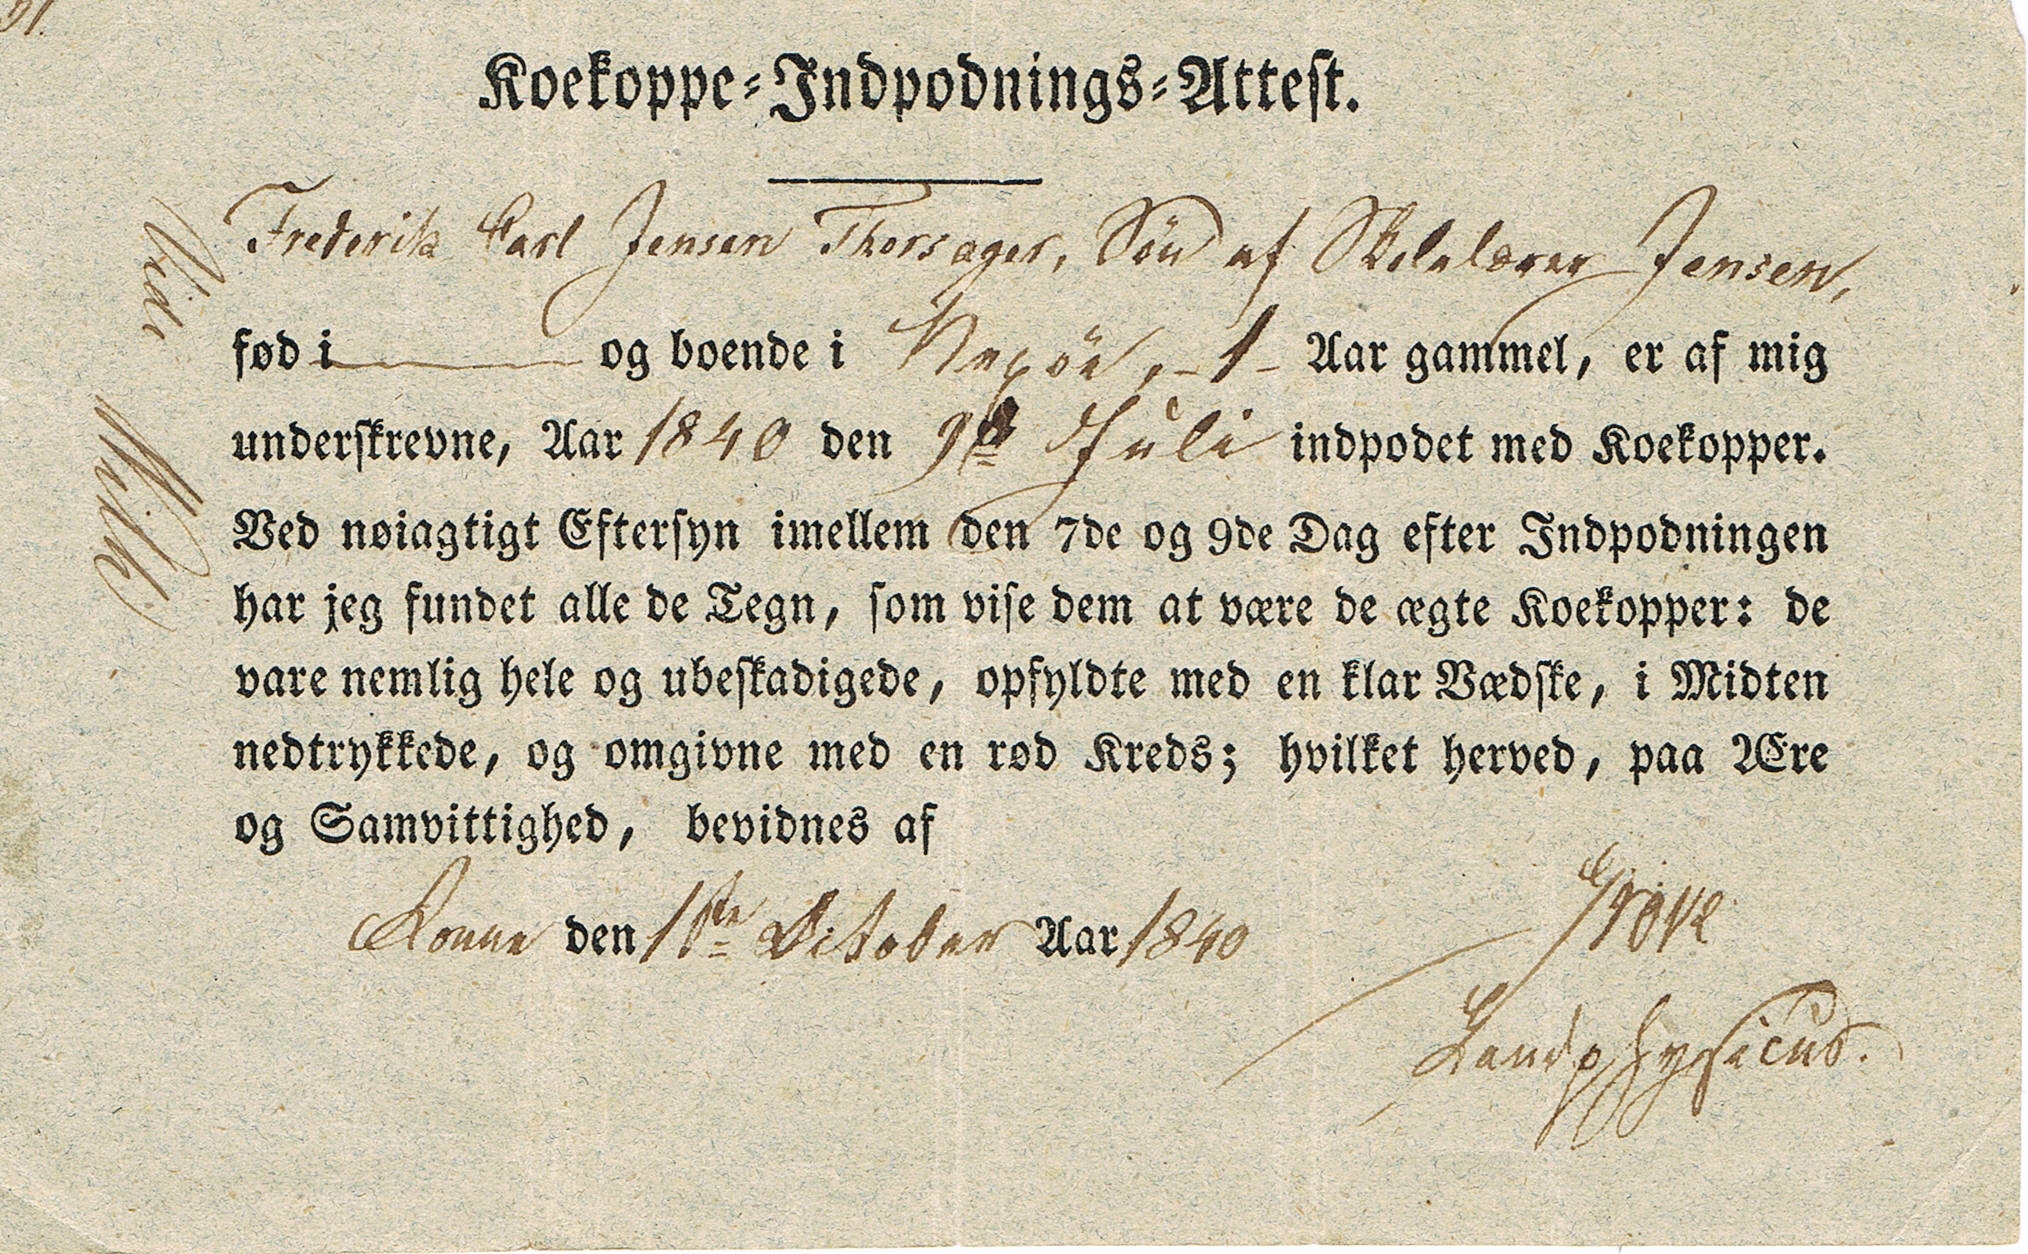 Koekoppe-Indpodnings-Attest.
Frederik Carl Jensen Thorsager, Sön af Skolelærer Jensen,
fød i og boende i Nexöe, - 1 - Aar gammel, er af mig
underskrevne, Aar 1840 den 9de Juli indpodet med Koekopper.
Ved nøiagtigt Eftersyn imellem den 7de og 9de Dag efter Indpodningen
har jeg fundet alle de Tegn, som vise dem at være de ægte Koekopper: de
vare nemlig hele og ubeskadigede, opfyldte med en klar Vædske, i Midten
nedtrykkede, og omgivne med en rød Kreds; hvilket herved, paa Ære
og Samvittighed, bevidnes af
Rønne den 1ste October Aar 1840
Landphysicus.
Vidi